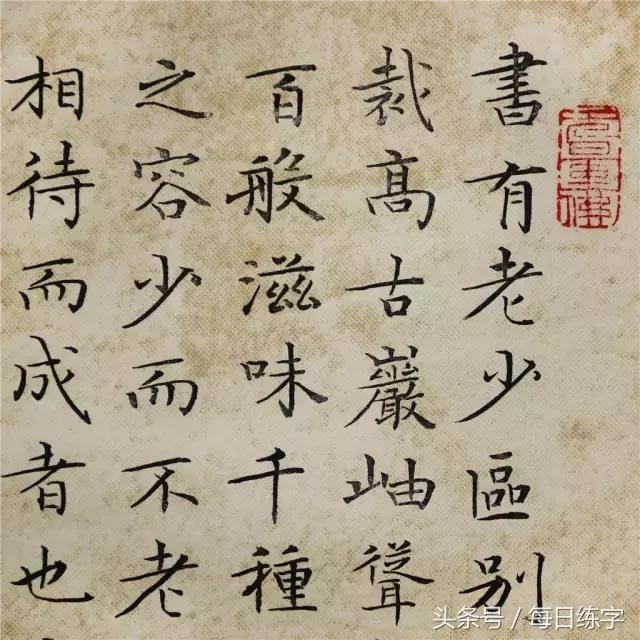 書有老少區别
裁高古巖岫聳
百般滋味千種
之容少而不老
相待而成者也
头条号 / 每日练字